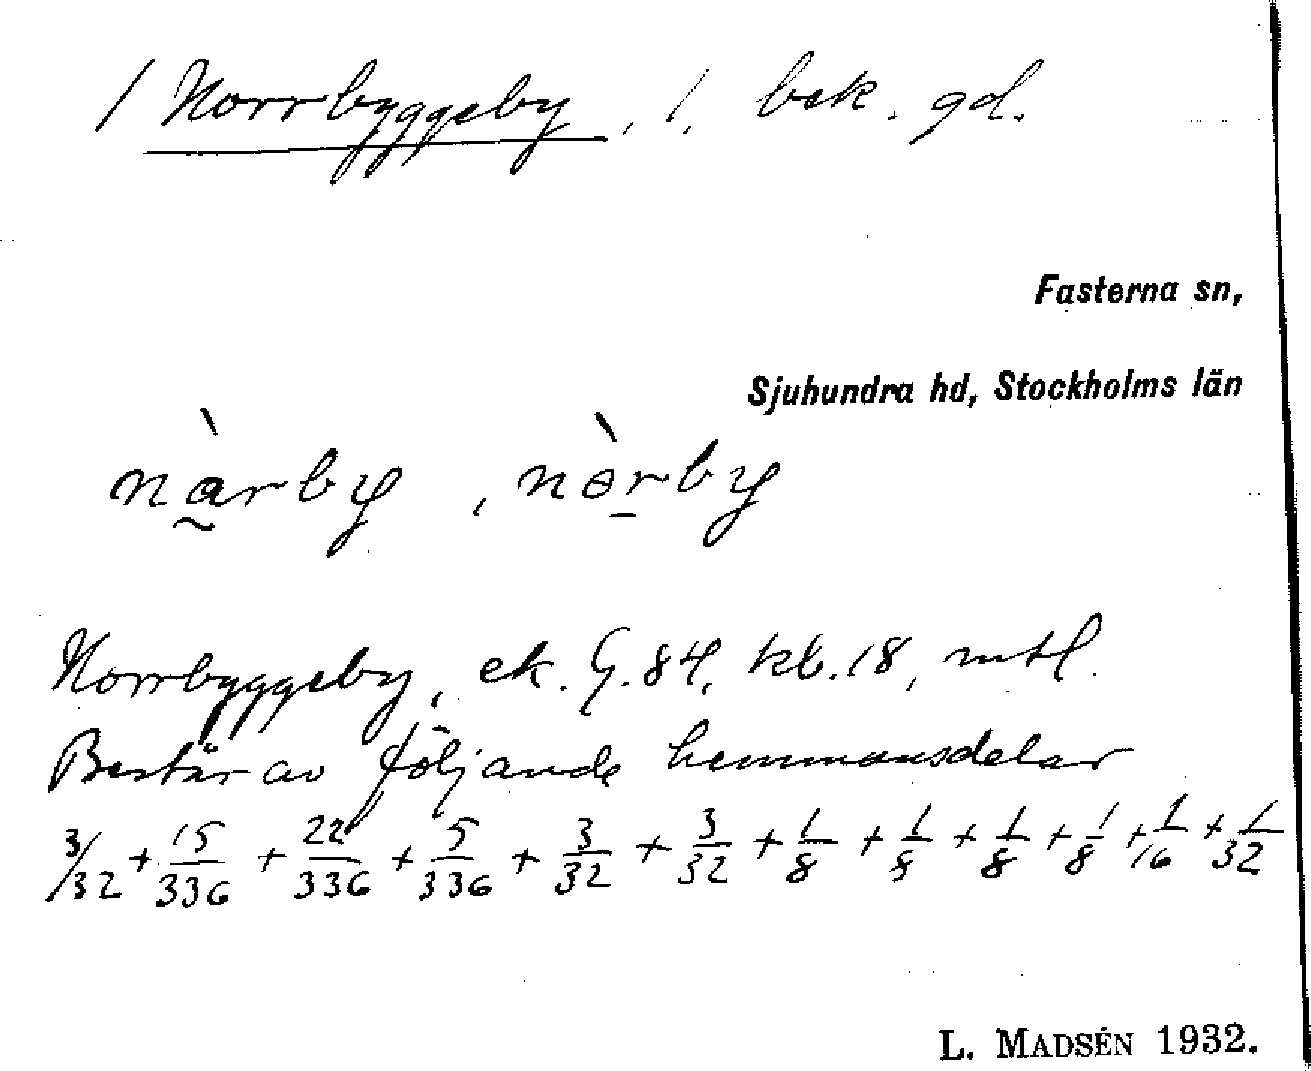 / Norrbyggeby, /, bek. gd.
Fasterna sn,
Sjuhundra hd, Stockholms län
nàrby, nòrby
Norrbyggeby, ek. G. 84, kb. 18, mtl.
Består av följande hemmansdelar
3/32 + 15/336 + 22/336 + 5/336 + 3/32 + 3/32 + 1/8 + 1/8 + 1/8 + 1/8 + 1/16 + 1/32
L. MADSÉN 1932.